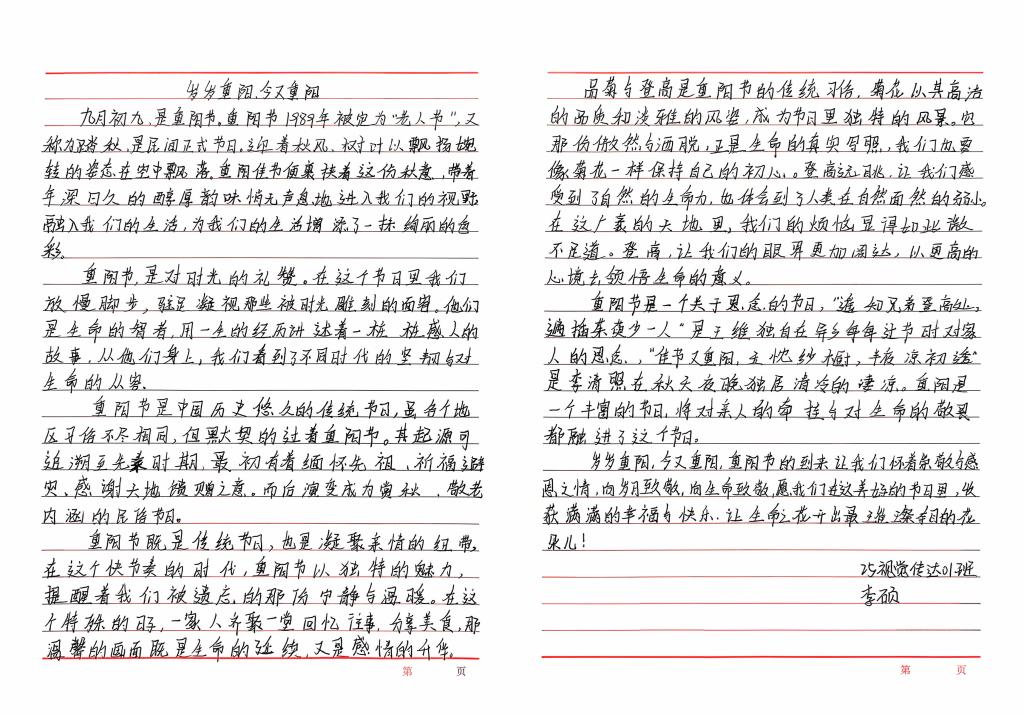 岁岁重阳,今又重阳
九月初九,是重阳节。重阳节1989年被定为“老人节”,又
称为踏秋,是民间正式节日,迎着秋风,树叶以飘扬婉
转的姿态在空中飘落。重阳佳节便裹挟着这份秋意,带着
年深日久的醇厚韵味悄无声息地进入我们的视野
融入我们的生活,为我们的生活增添了一抹绚丽的色
彩。
重阳节,是对时光的礼赞。在这个节日里我们
放慢脚步,驻足凝视那些被时光雕刻的面容。他们
是生命的智者,用一生的经历讲述着一桩桩感人的
故事,从他们身上,我们看到了不同时代的坚韧与对
生命的从容.
重阳节是中国历史悠久的传统节日,虽各个地
区习俗不尽相同,但默契的过着重阳节。其起源可
追溯至先秦时期,最初有着缅怀先祖、祈福避
灾、感谢天地馈赠之意。而后演变成为赏秋、敬老
内涵的民俗节日。
重阳节既是传统节日,也是凝聚亲情的纽带。
在这个快节奏的时代,重阳节以独特的魅力,
提醒着我们被遗忘的那份宁静与温暖。在这
个特殊的日子,一家人齐聚一堂回忆往事,分享美食,那
温馨的画面既是生命的延续,又是感情的升华。
第 页
品菊与登高是重阳节的传统习俗,菊花以其高洁
的品质和淡雅的风姿,成为节日里独特的风景。它
那份傲然与洒脱,正是生命的真实写照,我们也要
像菊花一样保持自己的初心。登高远眺,让我们感
受到了自然的生命力,也体会到了人类在自然面前的弱小。
在这广袤的天地里,我们的烦恼显得如此微
不足道。登高,让我们的眼界更加阔达,以更高的
心境去领悟生命的意义。
重阳节是一个关于思念的节日,“遥知兄弟登高处,
遍插茱萸少一人”是王维独自在异乡每每过节时对家
人的思念,“佳节又重阳,玉枕纱橱,半夜凉初透”
是李清照在秋天夜晚独居清冷的凄凉。重阳是
一个丰富的节日,将对亲人的牵挂与对生命的敬畏
都融进了这个节日。
岁岁重阳,今又重阳,重阳节的到来让我们怀着崇敬与感
恩之情,向岁月致敬,向生命致敬,愿我们在这美好的节日里,收
获满满的幸福与快乐.让生命之花开出最璀璨夺目的花
朵儿!
25视觉传达01班
李硕
第 页